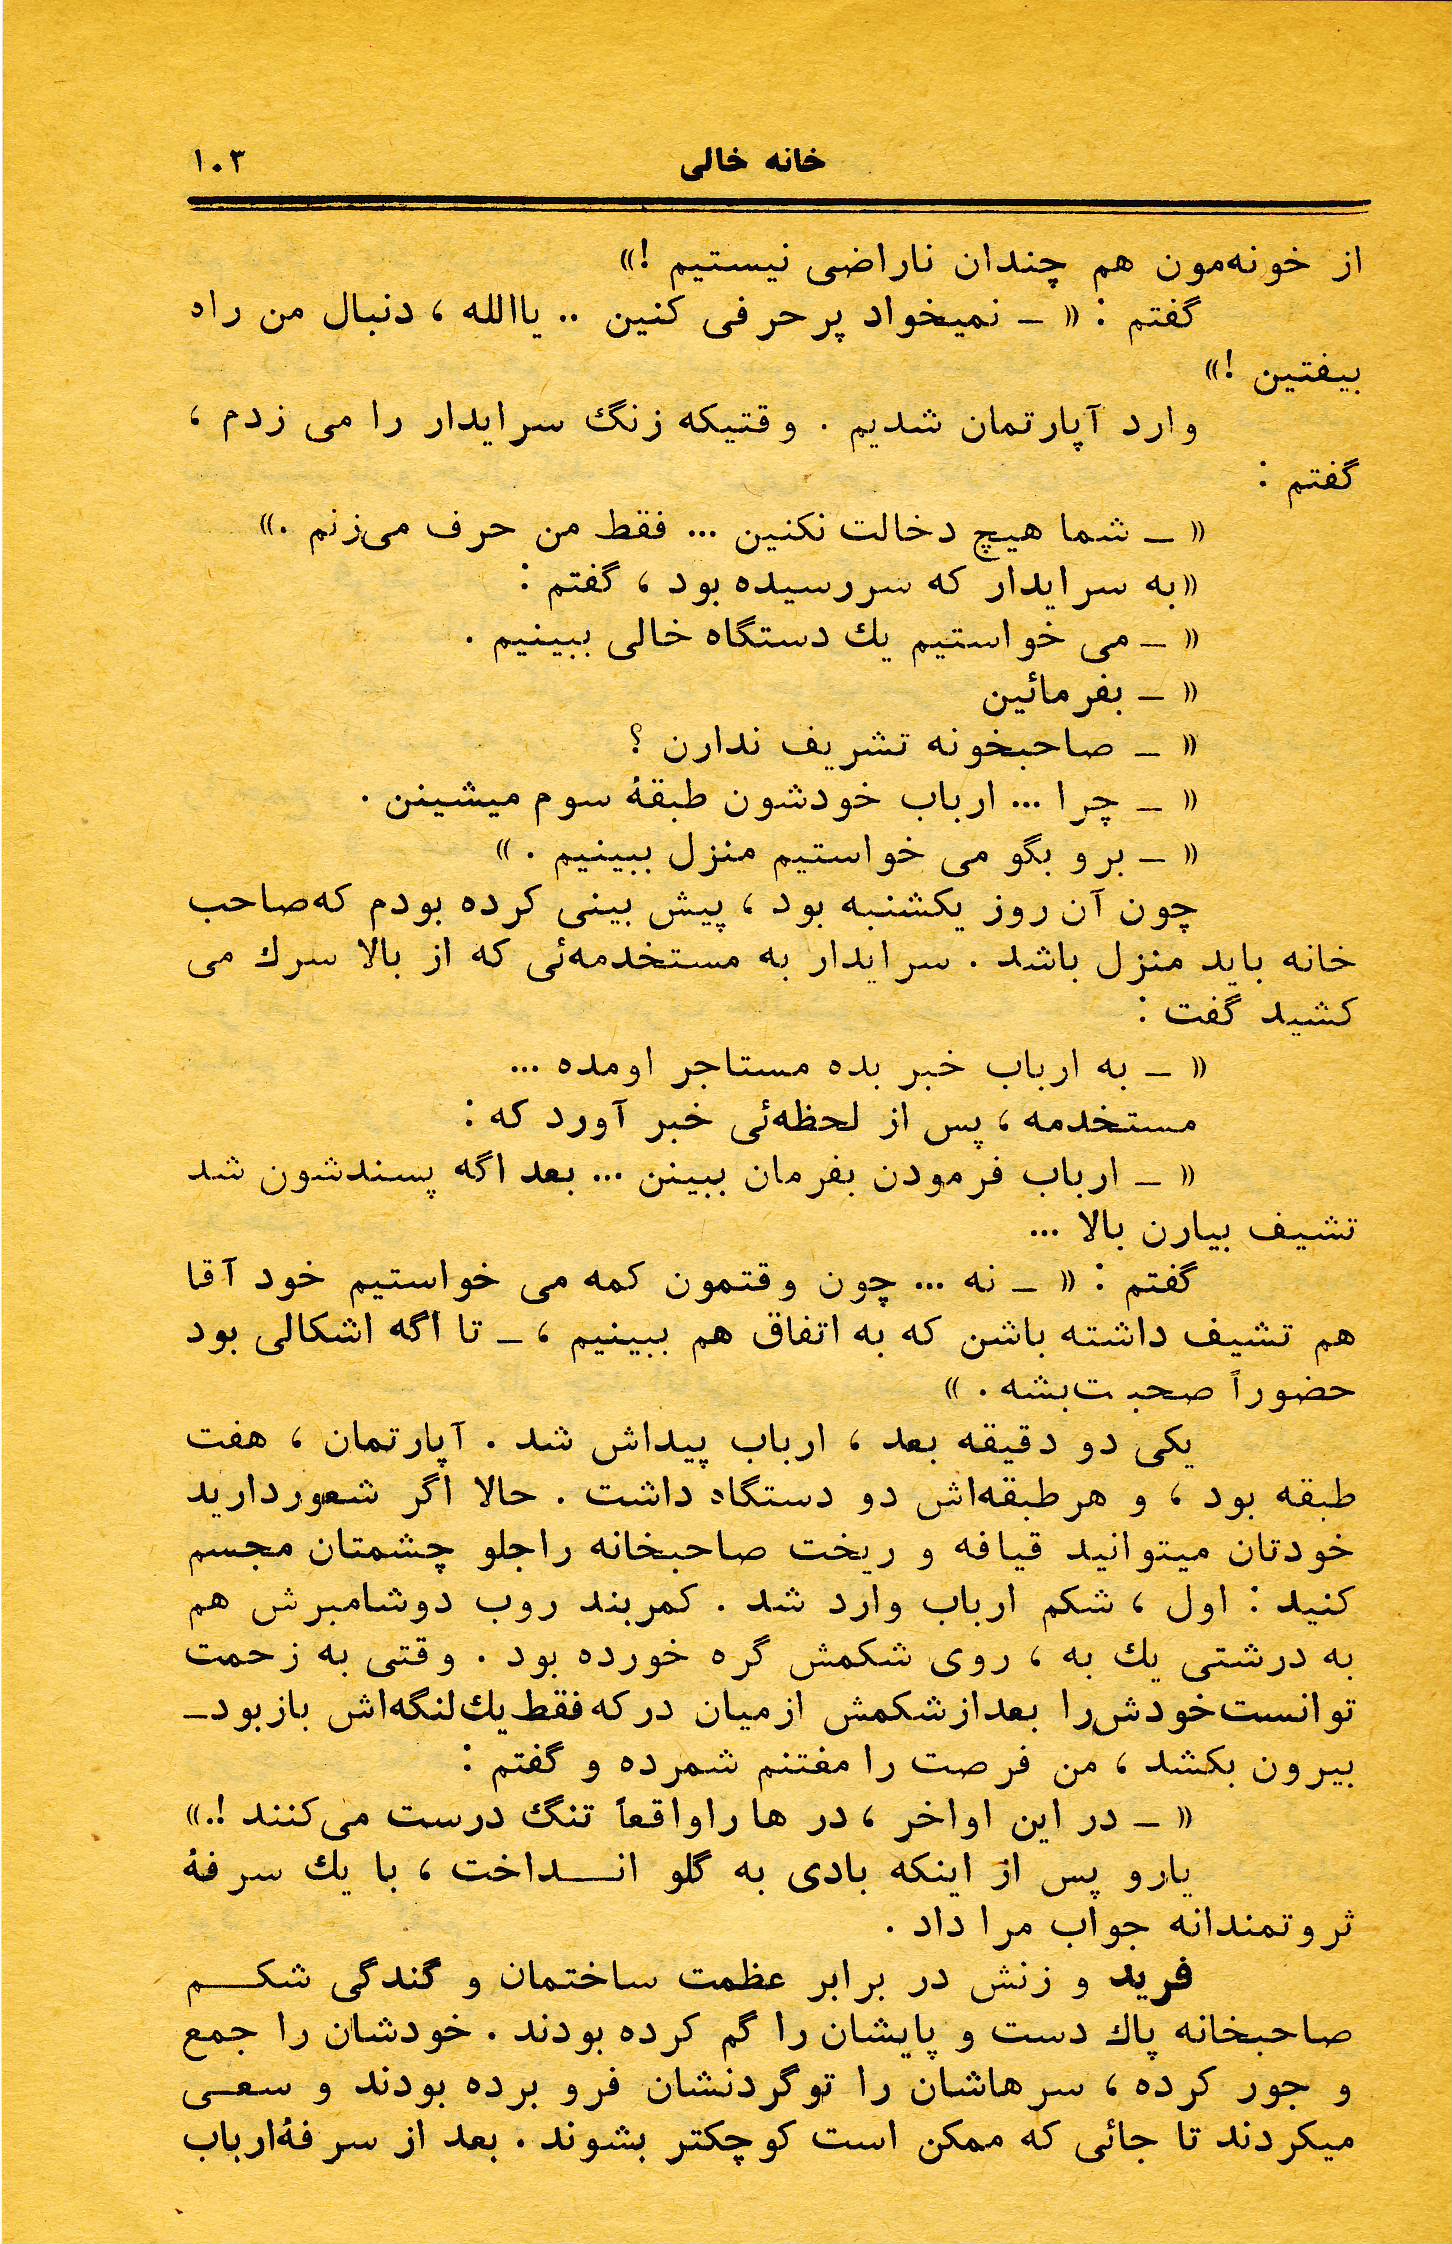 خانه خالی ۱۰۳
از خونه‌مون هم چندان ناراضی نیستیم !»
گفتم : « ـ نمیخواد پرحرفی کنین .. یاالله ، دنبال من راه
بیفتین !»
وارد آپارتمان شدیم . وقتیکه زنگ سرایدار را می زدم ،
گفتم :
« ـ شما هیچ دخالت نکنین ... فقط من حرف می‌زنم .»
«به سرایدار که سررسیده بود ، گفتم :
« ـ می خواستیم یك دستگاه خالی ببینیم .
« ـ بفرمائین
« ـ صاحبخونه تشریف ندارن ؟
« ـ چرا ... ارباب خودشون طبقهٔ سوم میشینن .
« ـ برو بگو می خواستیم منزل ببینیم . »
چون آن روز یکشنبه بود ، پیش بینی کرده بودم که‌صاحب
خانه باید منزل باشد . سرایدار به مستخدمه‌ئی که از بالا سرك می
کشید گفت :
« ـ به ارباب خبر بده مستاجر اومده ...
مستخدمه ، پس از لحظه‌ئی خبر آورد که :
« ـ ارباب فرمودن بفرمان ببینن ... بعد اگه پسندشون شد
تشیف بیارن بالا ...
گفتم : « ـ نه ... چون وقتمون کمه می خواستیم خود آقا
هم تشیف داشته باشن که به اتفاق هم ببینیم ، ـ تا اگه اشکالی بود
حضوراً صحبت‌بشه . »
یکی دو دقیقه بعد ، ارباب پیداش شد . آپارتمان ، هفت
طبقه بود ، و هرطبقه‌اش دو دستگاه داشت . حالا اگر شعوردارید
خودتان میتوانید قیافه و ریخت صاحبخانه راجلو چشمتان مجسم
کنید : اول ، شکم ارباب وارد شد . کمربند روب دوشامبرش هم
به درشتی یك به ، روی شکمش گره خورده بود . وقتی به زحمت
توانست‌خودش‌را بعدازشکمش ازمیان درکه‌فقط‌یك‌لنگه‌اش بازبود ـ
بیرون بکشد ، من فرصت را مفتنم شمرده و گفتم :
« ـ در این اواخر ، در ها راواقعاً تنگ درست می‌کنند !.»
یارو پس از اینکه بادی به گلو انـــداخت ، با یك سرفهٔ
ثروتمندانه جواب مرا داد .
فرید و زنش در برابر عظمت ساختمان و گندگی شکـــم
صاحبخانه پاك دست و پایشان را گم کرده بودند . خودشان را جمع
و جور کرده ، سرهاشان را توگردنشان فرو برده بودند و سعـی
میکردند تا جائی که ممکن است کوچکتر بشوند . بعد از سرفهٔ‌ارباب